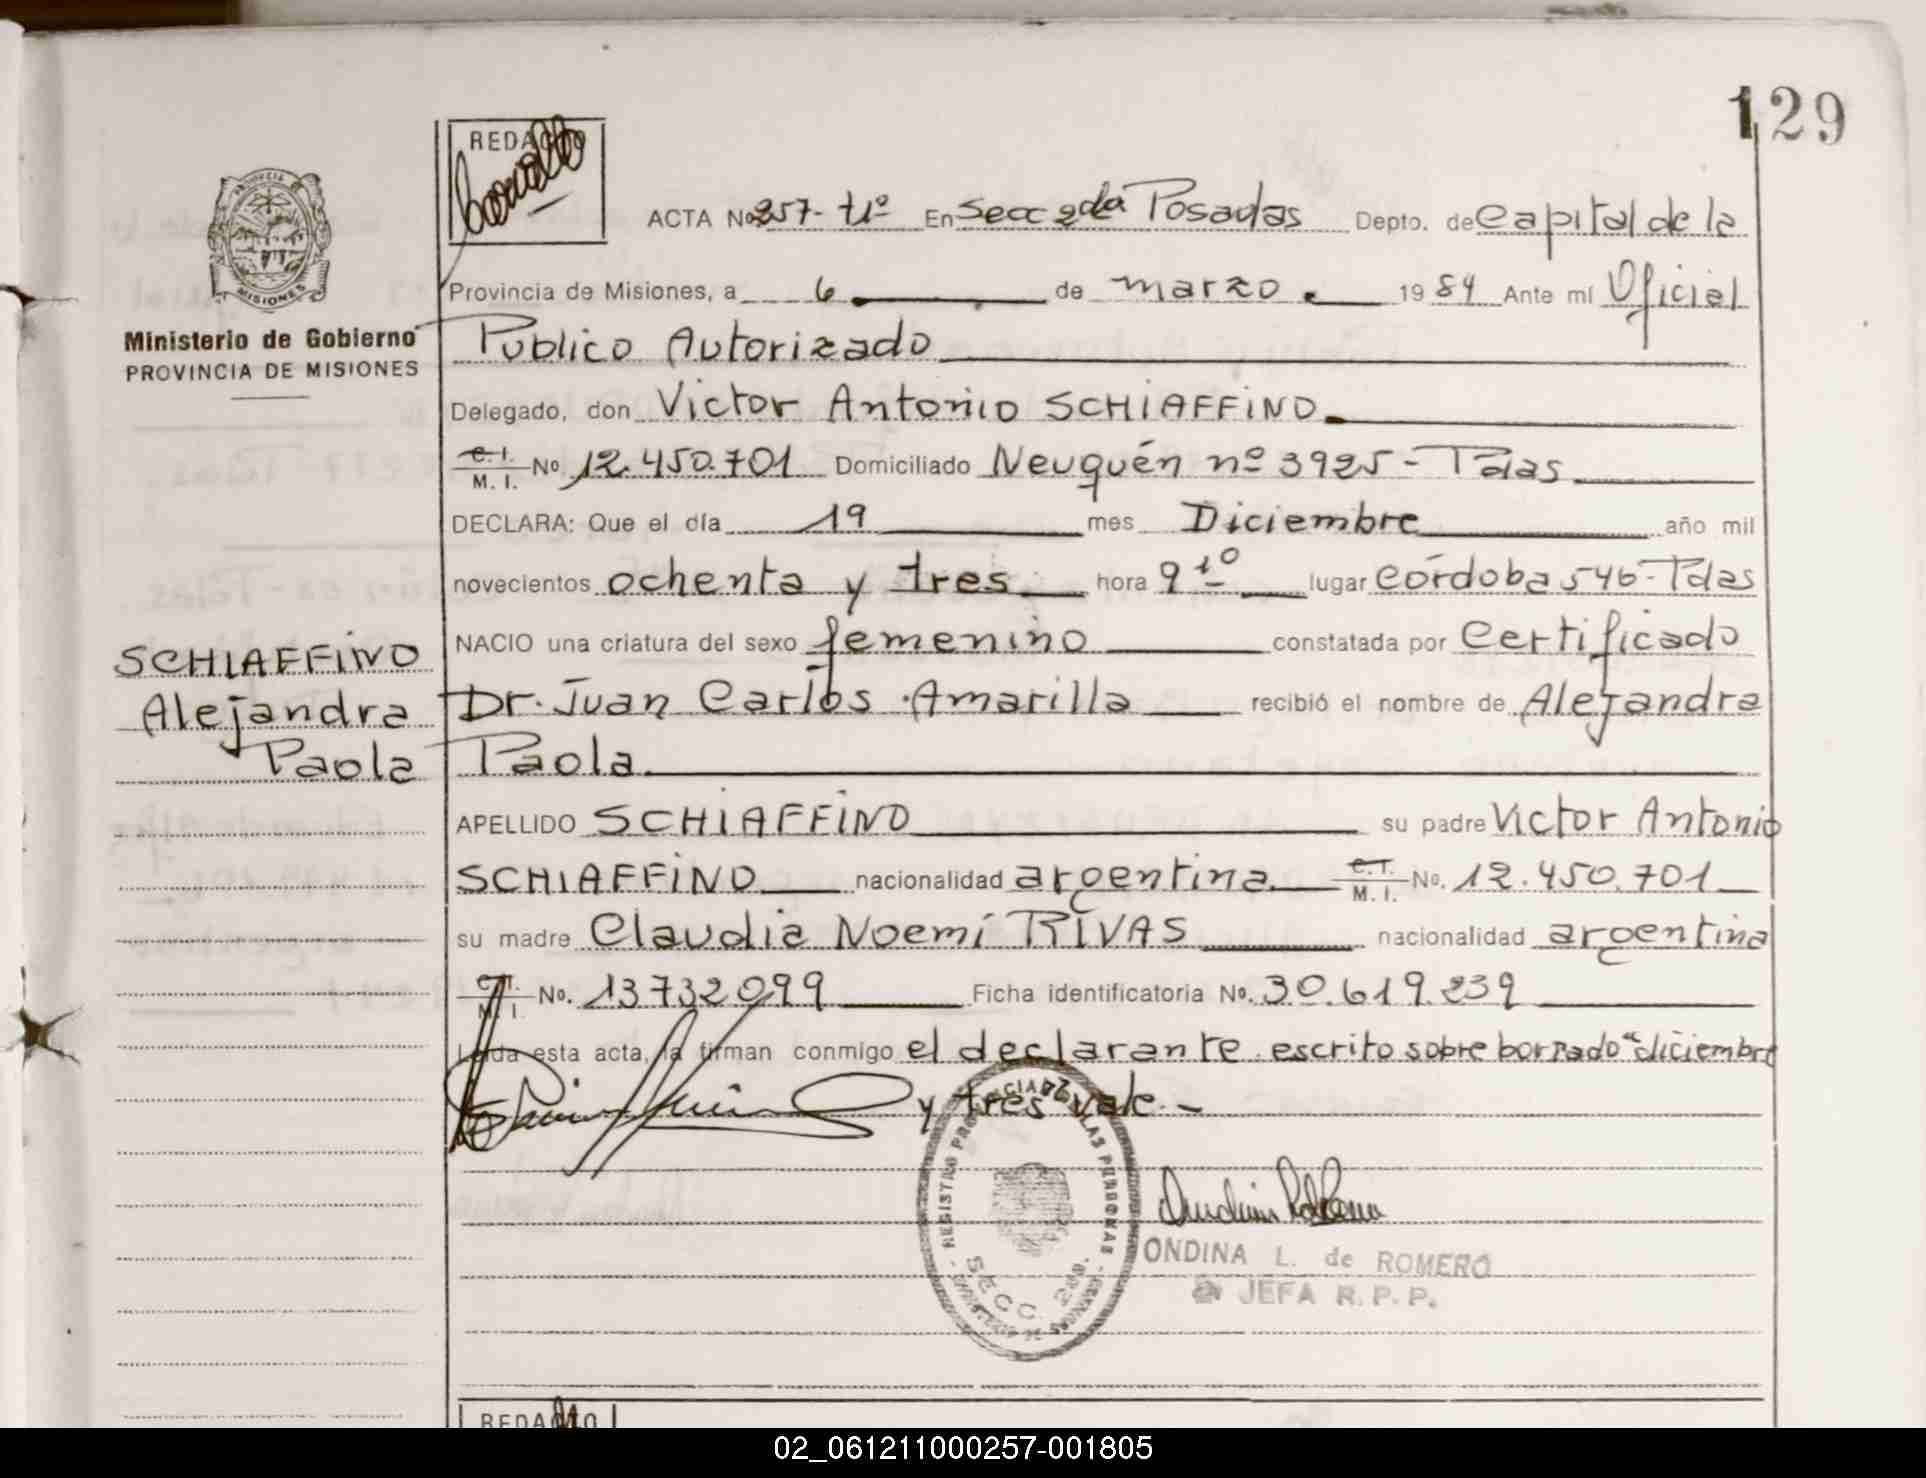 129
REDACTO
ACTA No 257- tº En Secc 2da Posadas Depto. de Capital de la
Provincia de Misiones, a 6 de marzo 1984 Ante mí Oficial
Ministerio de Gobierno
PROVINCIA DE MISIONES
Público Autorizado
Delegado, don Victor Antonio SCHIAFFINO
C. I. M. I. No 12.450.701 Domiciliado Neuquén nº 3925 - Pdas
DECLARA: Que el día 19 mes Diciembre año mil
novecientos ochenta y tres hora 9 10 lugar Córdoba 546-Pdas
NACIO una criatura del sexo femenino constatada por Certificado
Dr. Juan Carlos Amarilla recibió el nombre de Alejandra
Paola
SCHIAFFINO
Alejandra
Paola
APELLIDO SCHIAFFINO su padre Victor Antonio
SCHIAFFINO nacionalidad argentina C. I. M. I. No. 12.450.701
su madre Claudia Noemí RIVAS nacionalidad argentina
C. I. M. I. No. 13732099 Ficha identificatoria No. 30.619.239
Leída esta acta, la firman conmigo el declarante. escrito sobre borrado "diciembre
y tres" vale.-
REGISTRO PROVINCIAL DE LAS PERSONAS
SECC. 2da.
ONDINA L. de ROMERO
JEFA R. P. P.
REDACTO
02_061211000257-001805